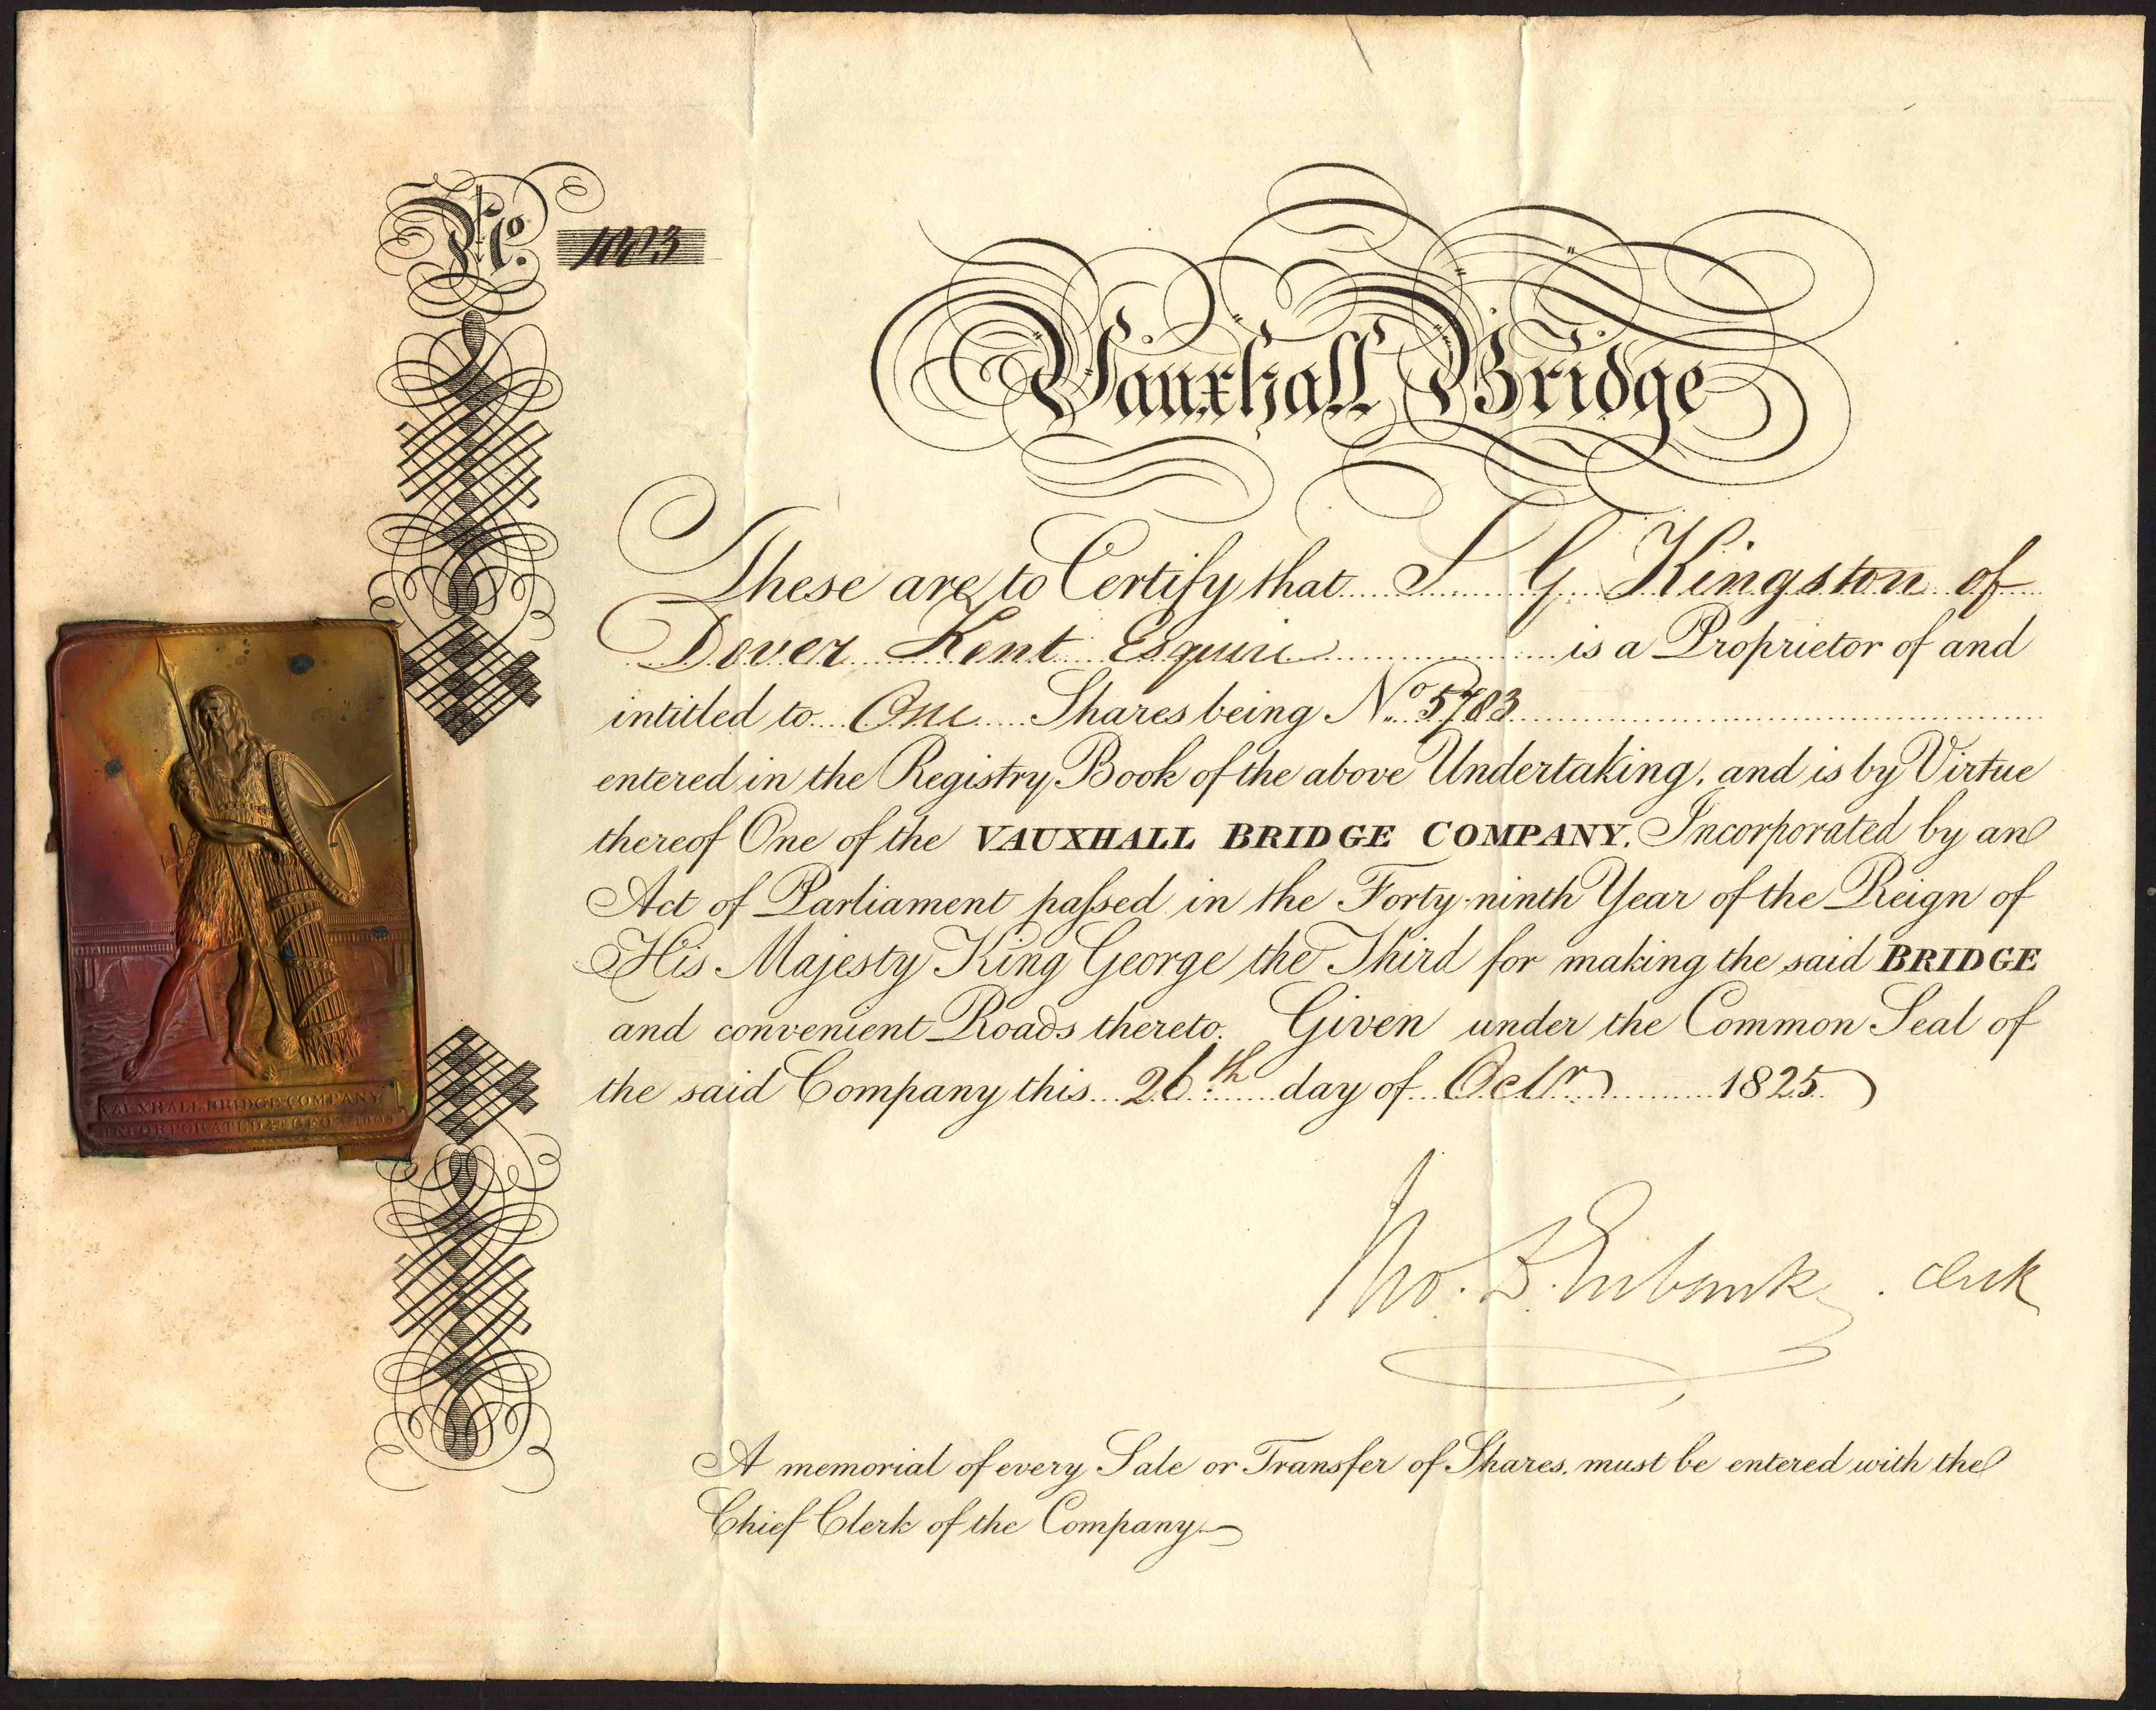 No. 1023
Vauxhall Bridge
These are to Certify that S G Kingston of
Dover Kent Esquire is a Proprietor of and
intitled to One Shares being No. 5783
entered in the Registry Book of the above Undertaking, and is by Virtue
thereof One of the VAUXHALL BRIDGE COMPANY. Incorporated by an
Act of Parliament paſsed in the Forty-ninth Year of the Reign of
His Majesty King George the Third for making the said BRIDGE
and convenient Roads thereto. Given under the Common Seal of
the said Company this 26th day of Octr 1825
Tho. B. Eubank. Clerk
A memorial of every Sale or Transfer of Shares, must be entered with the
Chief Clerk of the Company
VAUXHALL BRIDGE COMPANY
INCORPORATED 49 GEO 3 1809